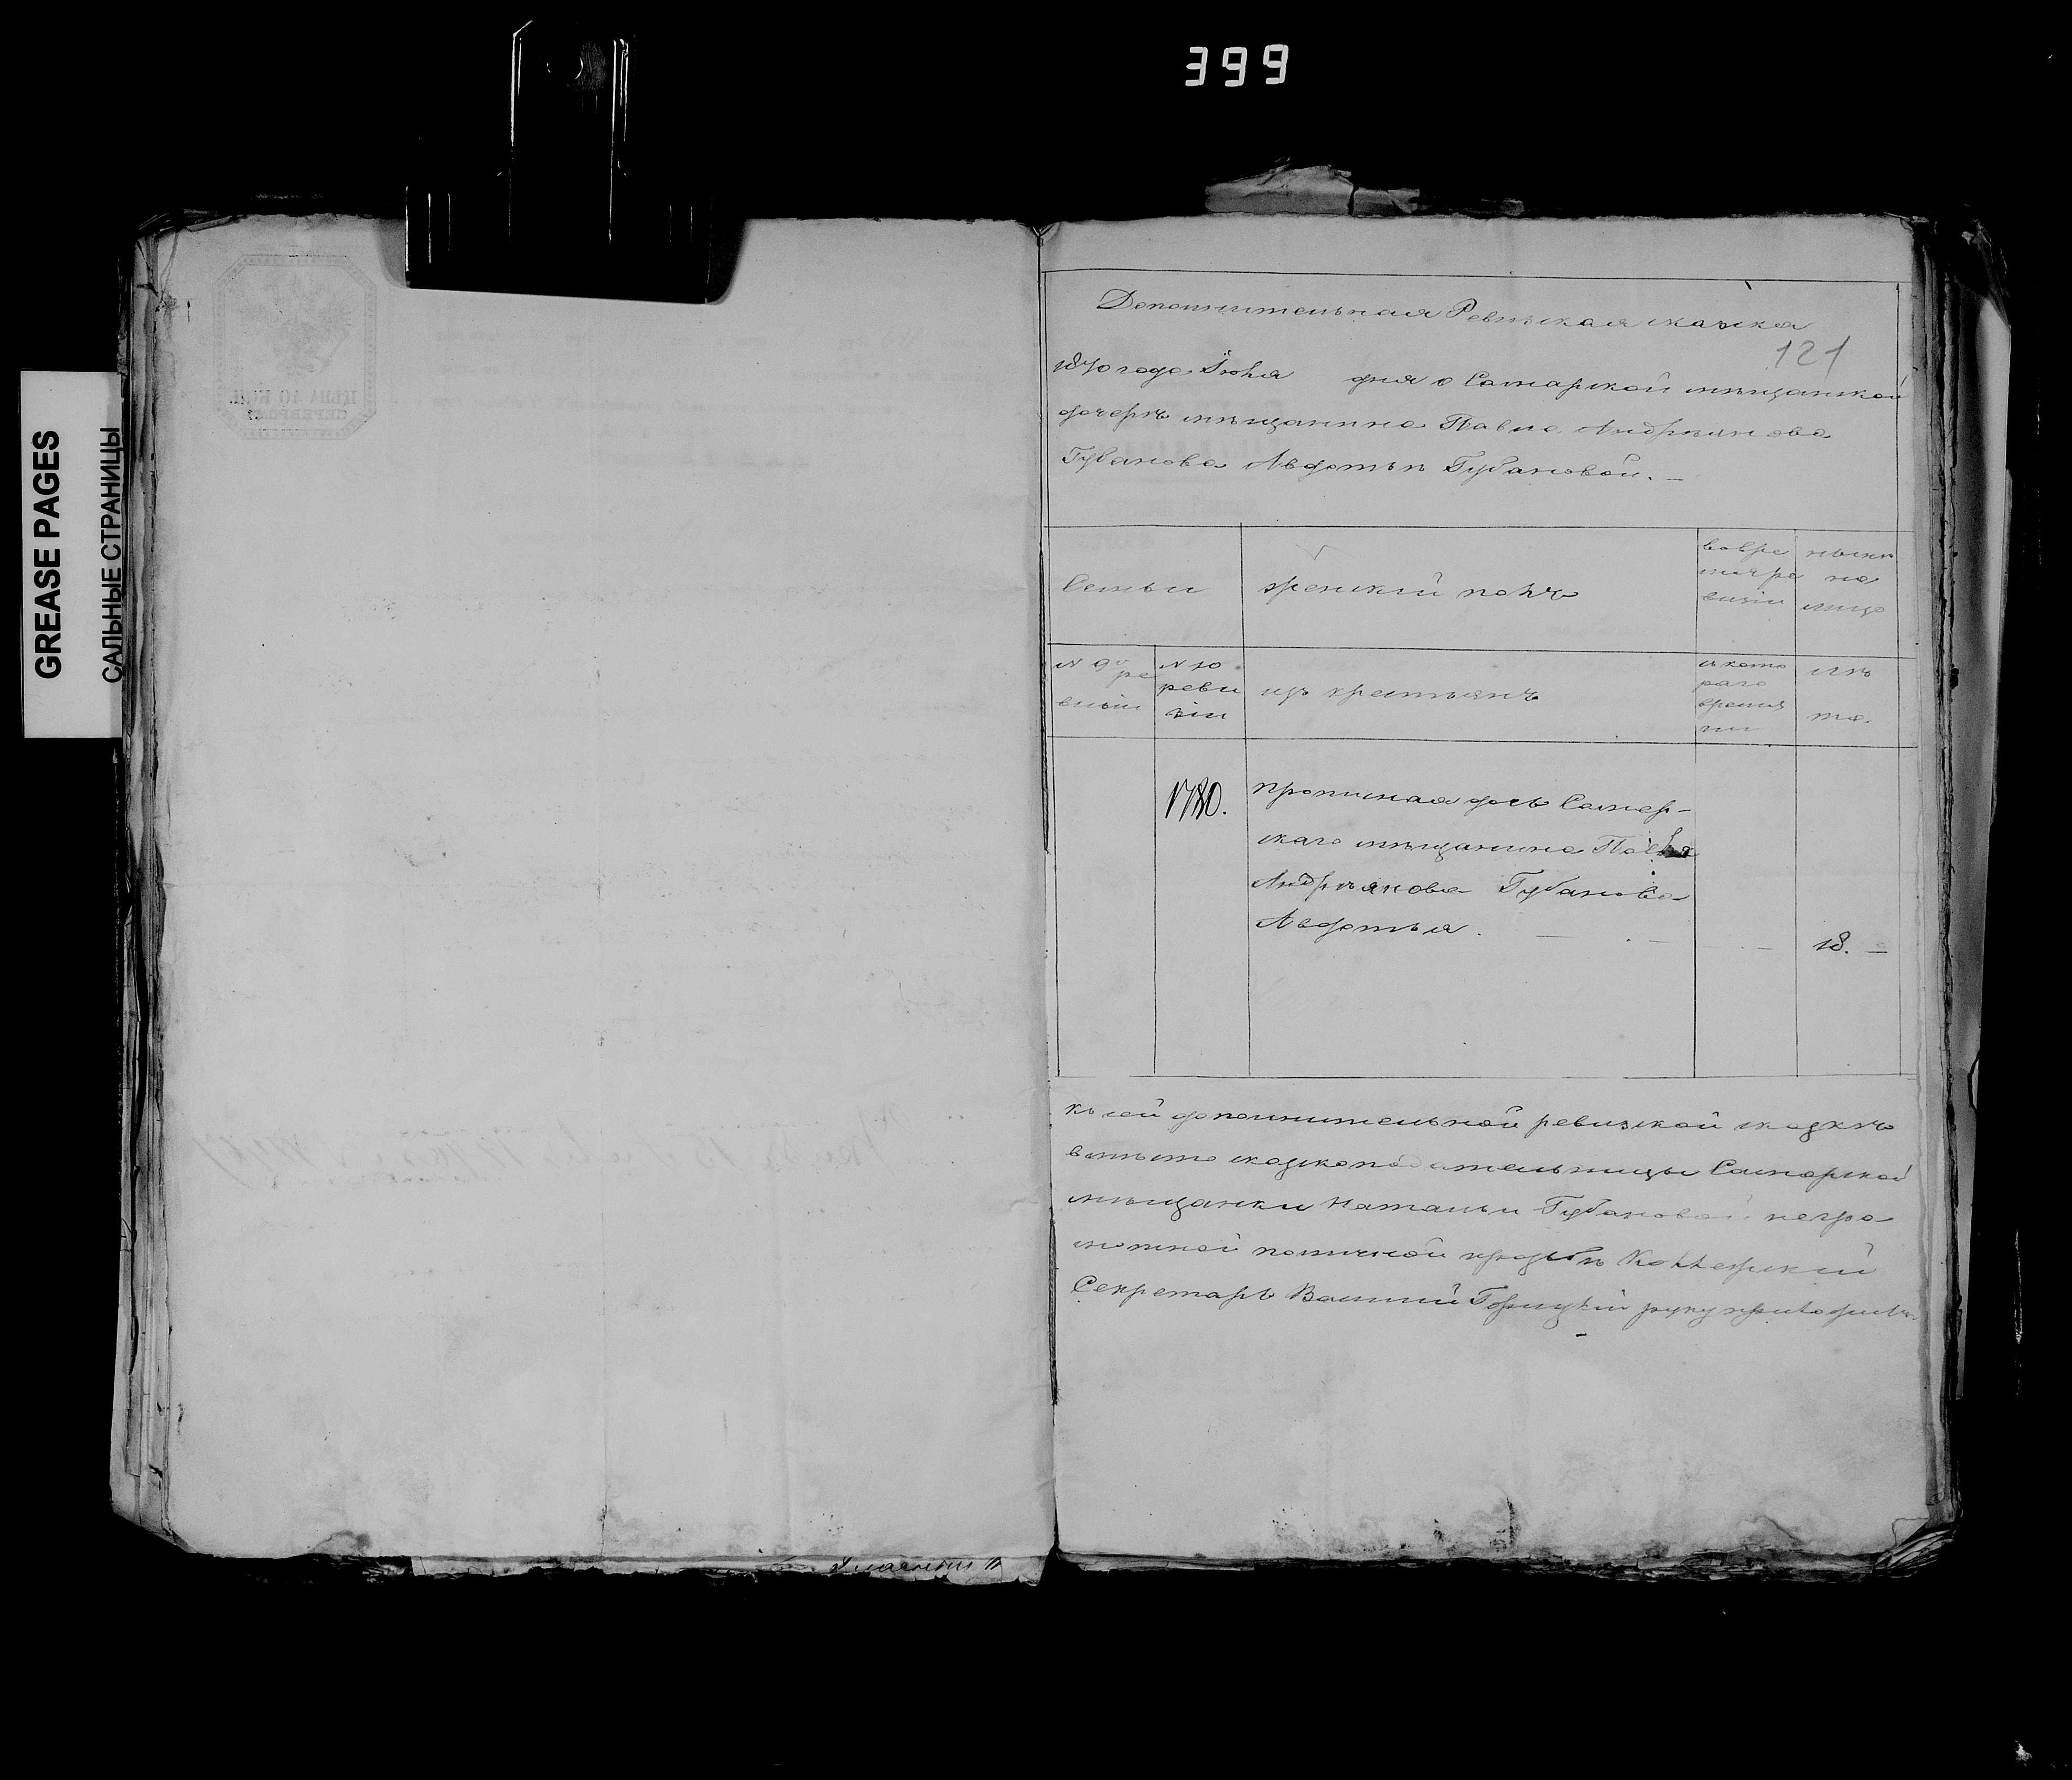 399
GREASE PAGES
САЛЬНЫЕ СТРАНИЦЫ
ЦѢНА 40 КОП.
СЕРЕБРОМЪ
Дополнительная Ревизская сказка
121
1870 года Іюня дня о Самарской мѣщанской
дочерѣ мѣщанина Павла Андрѣянова
Губанова Авдотьѣ Губановой. —
Семьи
женскій полъ
вовре
мя ре
визіи
нынѣ
на
лицо
№ 9й
ре
визіи
№ 10
реви
зіи
изъ крестьянъ
съ кото
раго
време
ни
Лѣ
та.
1780.
прописная дочь Самар-
скаго мѣщанина Павла
Андрѣянова Губанова
Авдотья. — — — 18. —
Къ сей дополнительной ревизской сказкѣ
вмѣсто сказкоподательницы Самарской
мѣщанки Натальи Губановой негра
мотной по личной просьбѣ Коллежскій
Секретарь Василій руку приложилъ